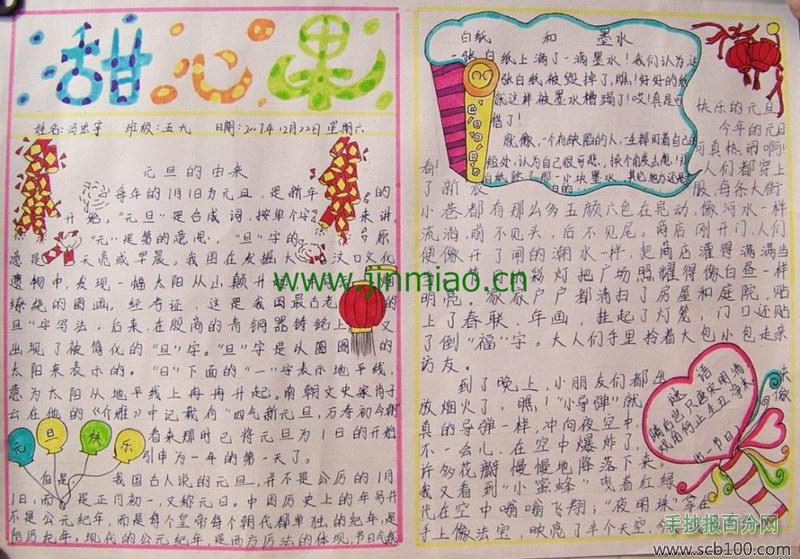 甜心果
班级:五九 日期:2007年12月22日 星期六
元旦的由来
每年的1月1日为元旦,是新年的
开始,"元旦"是合成词,按单个字来讲,
"元"是第的意思,"旦"字的原
意是天亮或早晨。我国在发掘大汶口文化
遗物中,发现一幅太阳从山颠升
缭绕的图画,经考证,这是我国最古老的
旦"字写法,后来,在殷商的青铜器铭上,又
出现了被简化的"旦"字。"旦"字是从圆圆的
太阳来表示的。"日"下面的"一"字表示地平线,
意为太阳从地平线上冉冉升起。南朝文史家肖子
云在他的《介雅》中记载有"四气新元旦,万寿初今朝
看来那时已将元旦为1日的开始
引申为一年的第一天了。
元 旦 快 乐
但是,我国古人说的元旦,并不是公历的1月
1日,而是正月初一,又称元日。中国历史上的年号并
不是公元纪年,而是每个皇帝每个朝代都单独的纪年,是
阳历纪年。现代的公元纪年是西方历法的体现,节日气氛
白纸 和 墨水
一张白纸上滴了一滴墨水!我们认为这
张白纸被毁掉了,瞧!好好的纸
就这样被墨水糟蹋了!哎!真是可
惜了!
就像,一个有缺陷的人,一生都盯着自己的
短处,认为自己很可悲,换个角度去想,
快乐的元旦
今年的元旦
可真热闹啊!
看!人们都穿上
了新衣服,每条大街
小巷都有那么多五颜六色在晃动,像河水一样
流淌,前不见头,后不见尾。商店刚开门,人们
便像开了闸的潮水一样,把商店灌得满满当
彩灯把广场照耀得像白昼一样
明亮。家家户户都清扫了房屋和庭院,贴
上了春联、年画,挂起了灯笼,门口还贴
了倒"福"字。大人们手里拎着大包小包走亲
访友。
到了晚上,小朋友们都出
放烟火了,瞧!"小导弹"就
真的导弹一样,冲向夜空中,
不一会儿,在空中爆炸了,
许多花瓣慢慢地降落下来。
我又看到"小蜜蜂"曳着红绿
在空中嗡嗡飞翔;"夜明珠"拿在
手上像法宝,映亮了半个天空。
谜语
(一节日)
www.jinmiao.cn
手抄报百分网
www.scb100.com